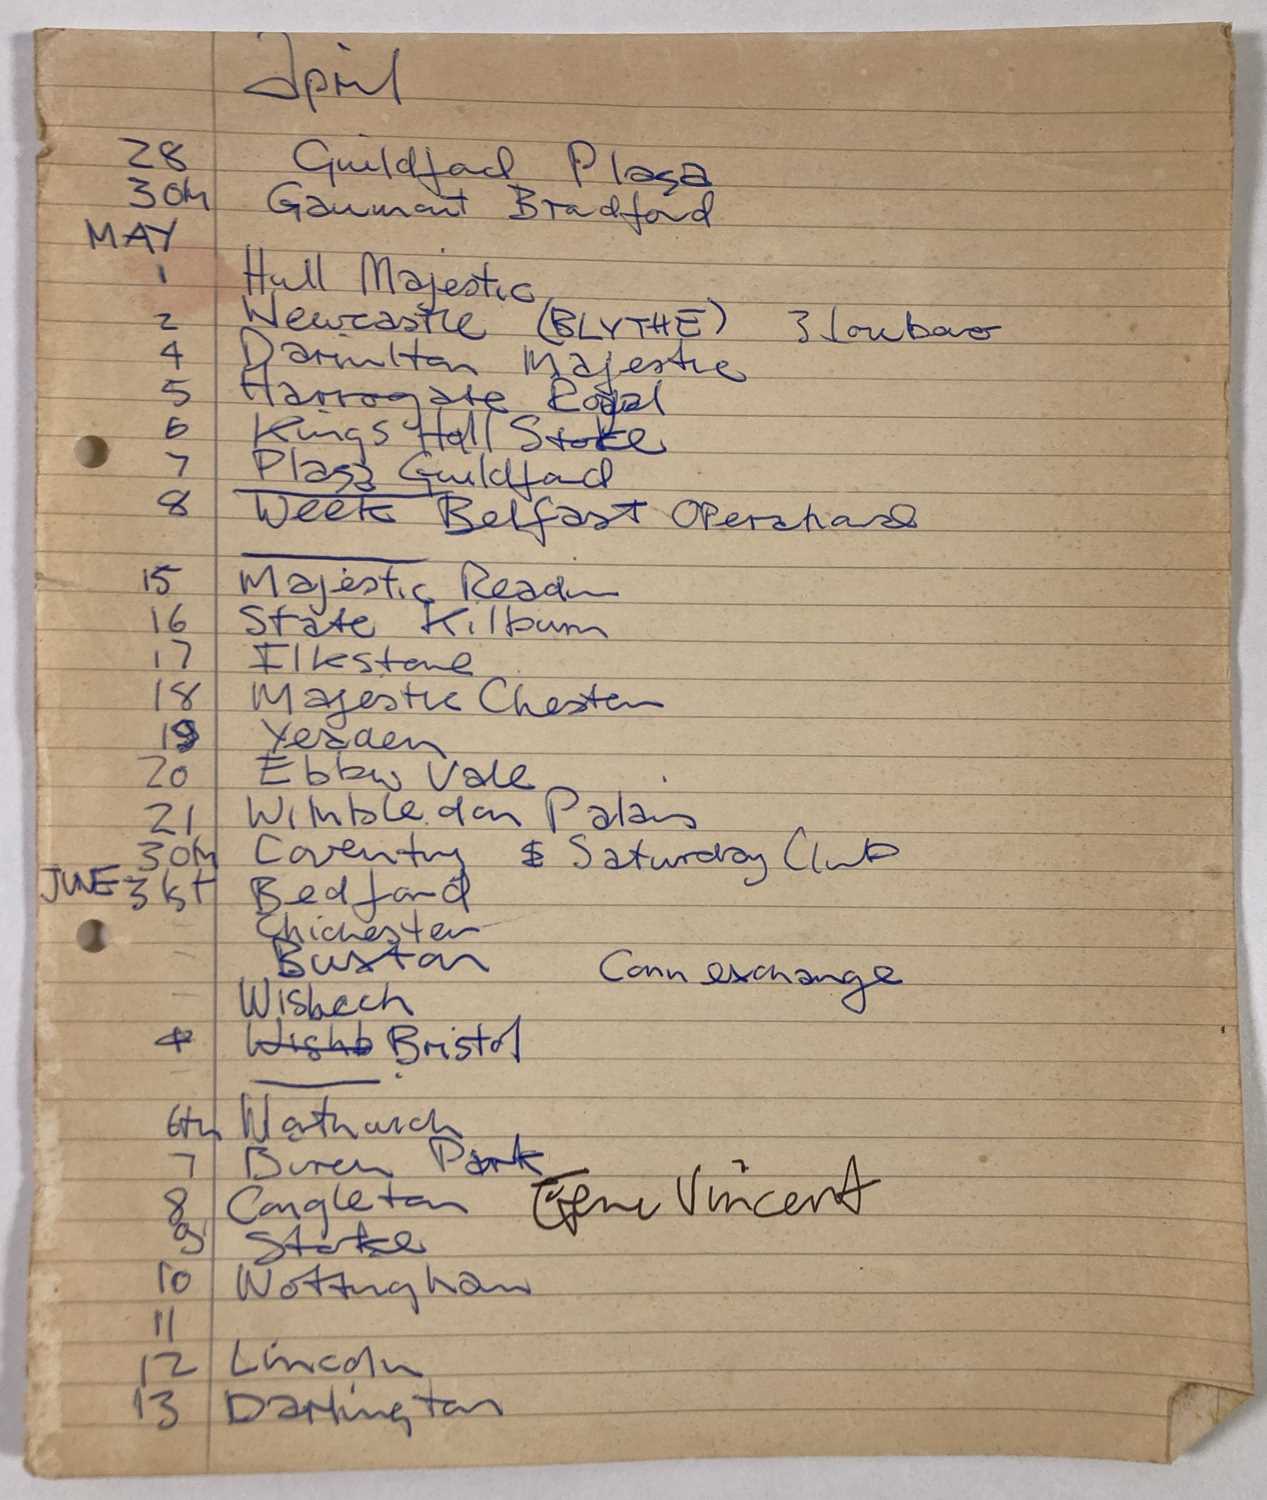 April
28 Guildford Plaza
30th Gaumont Bradford
MAY
1 Hull Majestic
2 Newcastle (BLYTHE)
4 Darmlton Majestic
5 Harrogate Royal
6 Kings Hall Stoke
7 Plaza Guildford
8 Week Belfast Operahouse
15 Majestic Readin
16 State Kilburn
17 Ilkstone
18 Majestic Chester
19 Yeaden
20 Ebbw Vale
21 Wimbledon Palais
30th Coventry & Saturday Club
JUNE 31st Bedford
Chichester
Buxton Corn exchange
Wisbech
4 Wishb Bristol
6th Nathwich
7 Buren Park
8 Congleton Gene Vincent
9 Stoke
10 Nottingham
11
12 Lincoln
13 Darlington